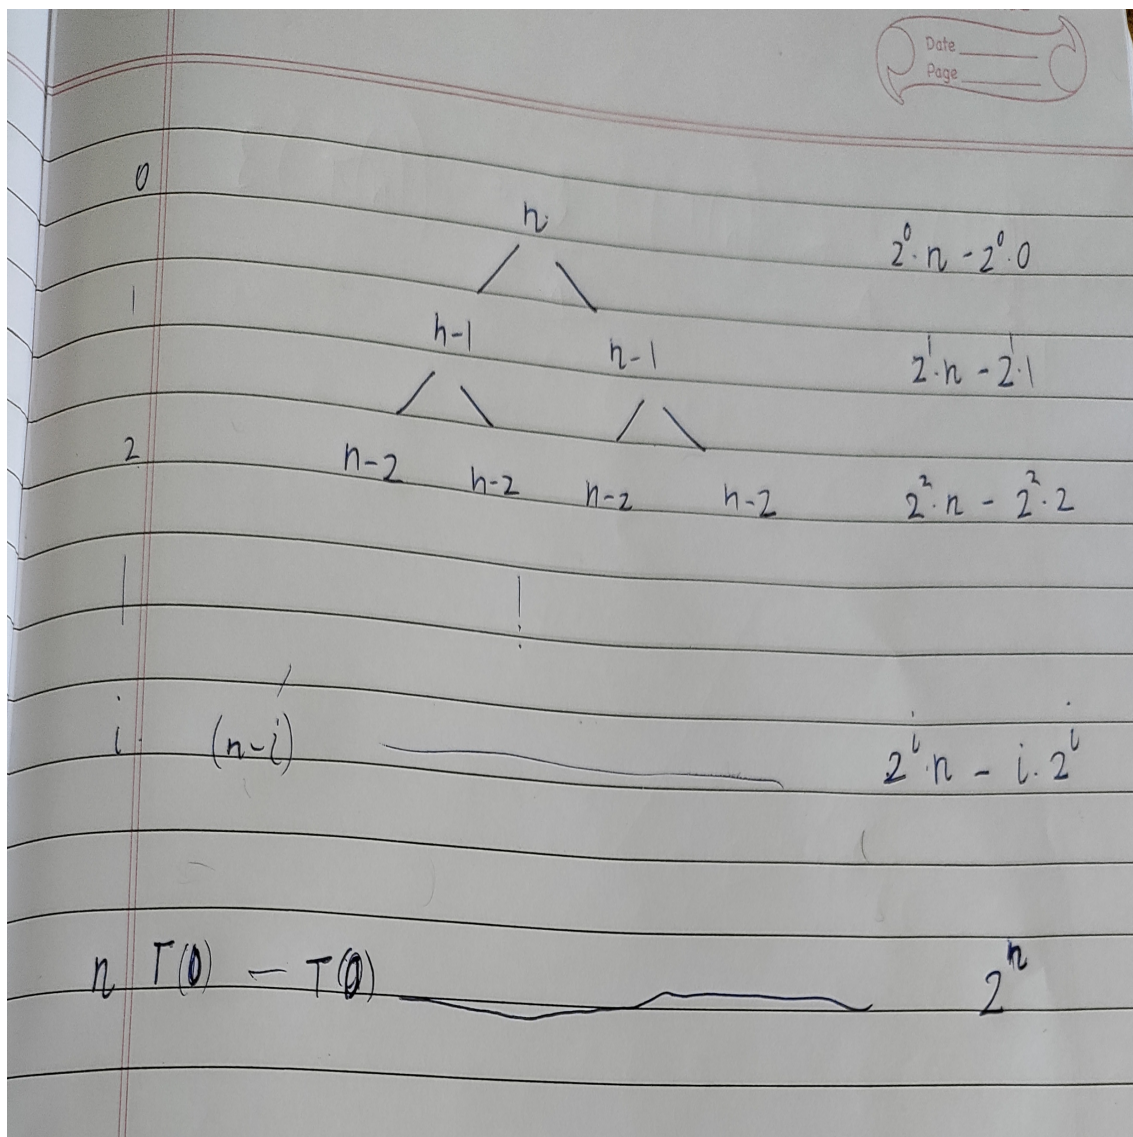 Date
Page
0
n
2⁰·n - 2⁰·0
1
n-1 n-1
2¹·n - 2¹·1
2
n-2 n-2 n-2 n-2
2²·n - 2²·2
i (n-i) 2ⁱ·n - i·2ⁱ
n T(0) — T(0) 2ⁿ